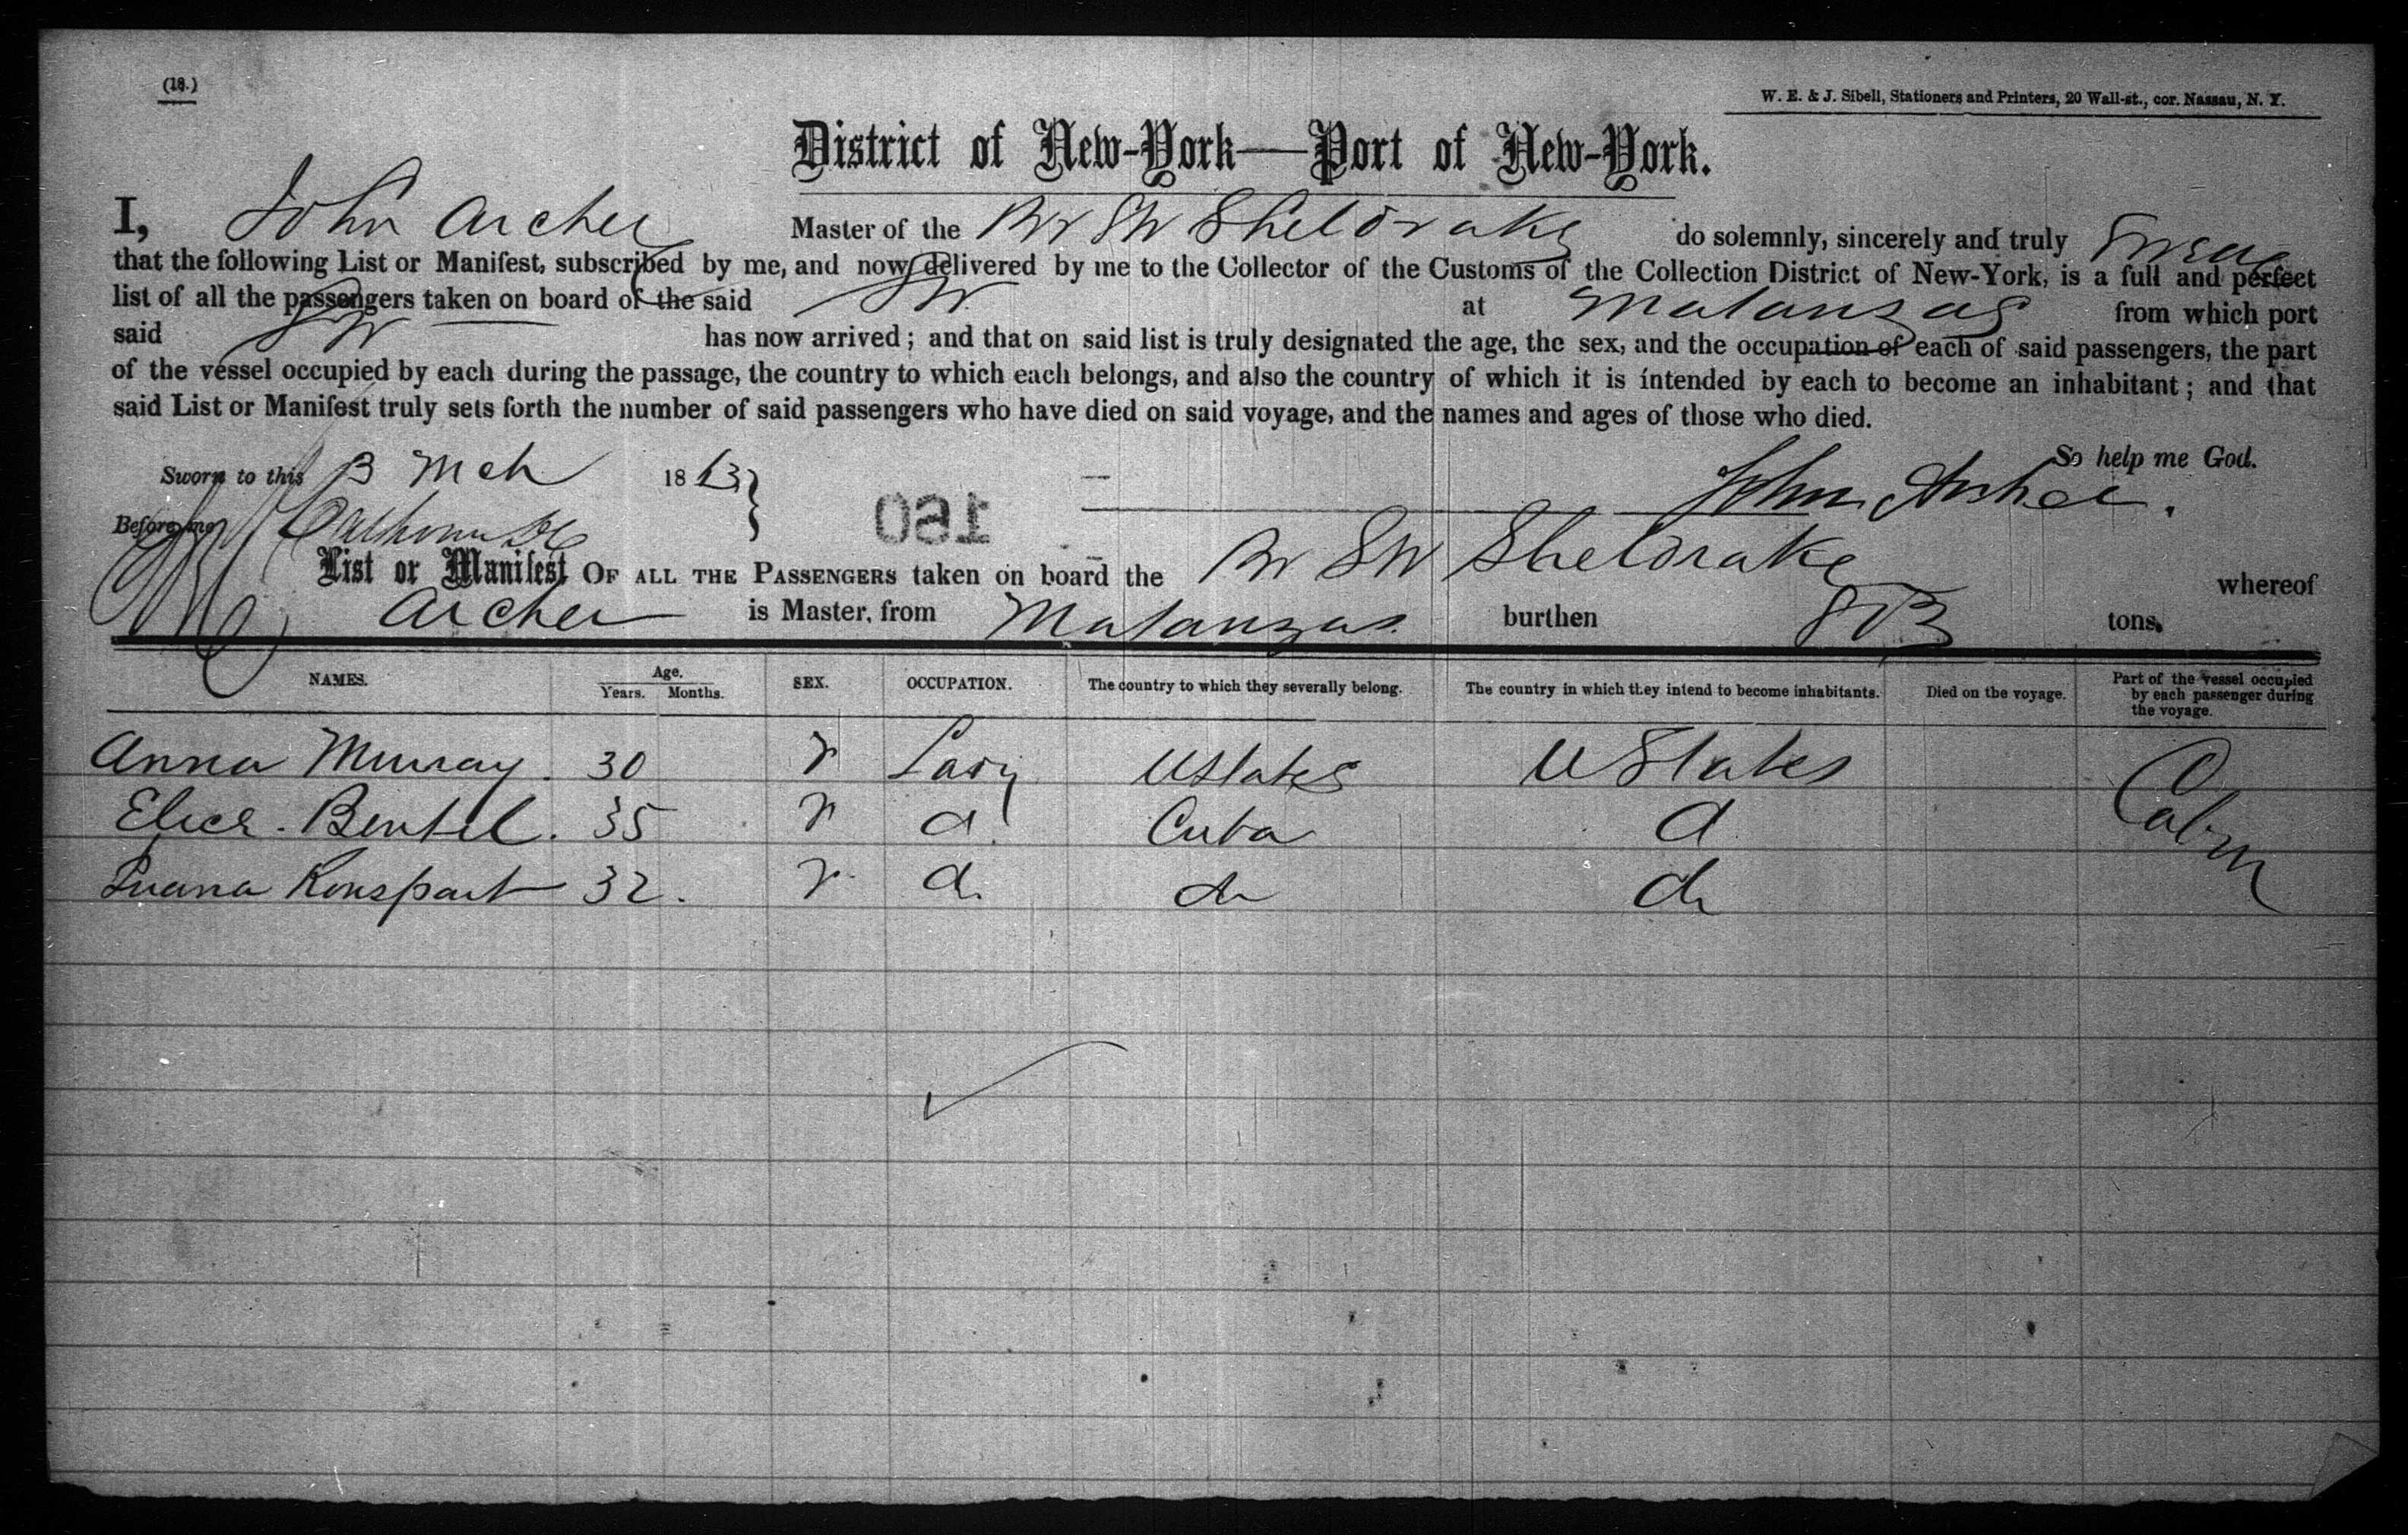 (18.)
W. E. & J. Sibell, Stationers and Printers, 20 Wall-st., cor. Nassau, N. Y.
District of New-York—Port of New-York.
I, John Archer Master of the Br SW Sheldrake do solemnly, sincerely and truly Swear
that the following List or Manifest, subscribed by me, and now delivered by me to the Collector of the Customs of the Collection District of New-York, is a full and perfect
list of all the passengers taken on board of the said SW at Matanzas from which port
said SW has now arrived; and that on said list is truly designated the age, the sex, and the occupation of each of said passengers, the part
of the vessel occupied by each during the passage, the country to which each belongs, and also the country of which it is intended by each to become an inhabitant; and that
said List or Manifest truly sets forth the number of said passengers who have died on said voyage, and the names and ages of those who died.
So help me God.
Sworn to this 3 Mch 1863
John Archer.
Before me
150
List or Manifest OF ALL THE PASSENGERS taken on board the Br SW Sheldrake whereof
Archer is Master, from Matanzas burthen tons.
NAMES. Age. Years. Months. SEX. OCCUPATION. The country to which they severally belong. The country in which they intend to become inhabitants. Died on the voyage. Part of the vessel occupied by each passenger during the voyage.
Anna Murray. 30 F Lady UStates U States Cabin
Bentel. 35 F d. Cuba d
Juana 32. F d. do do